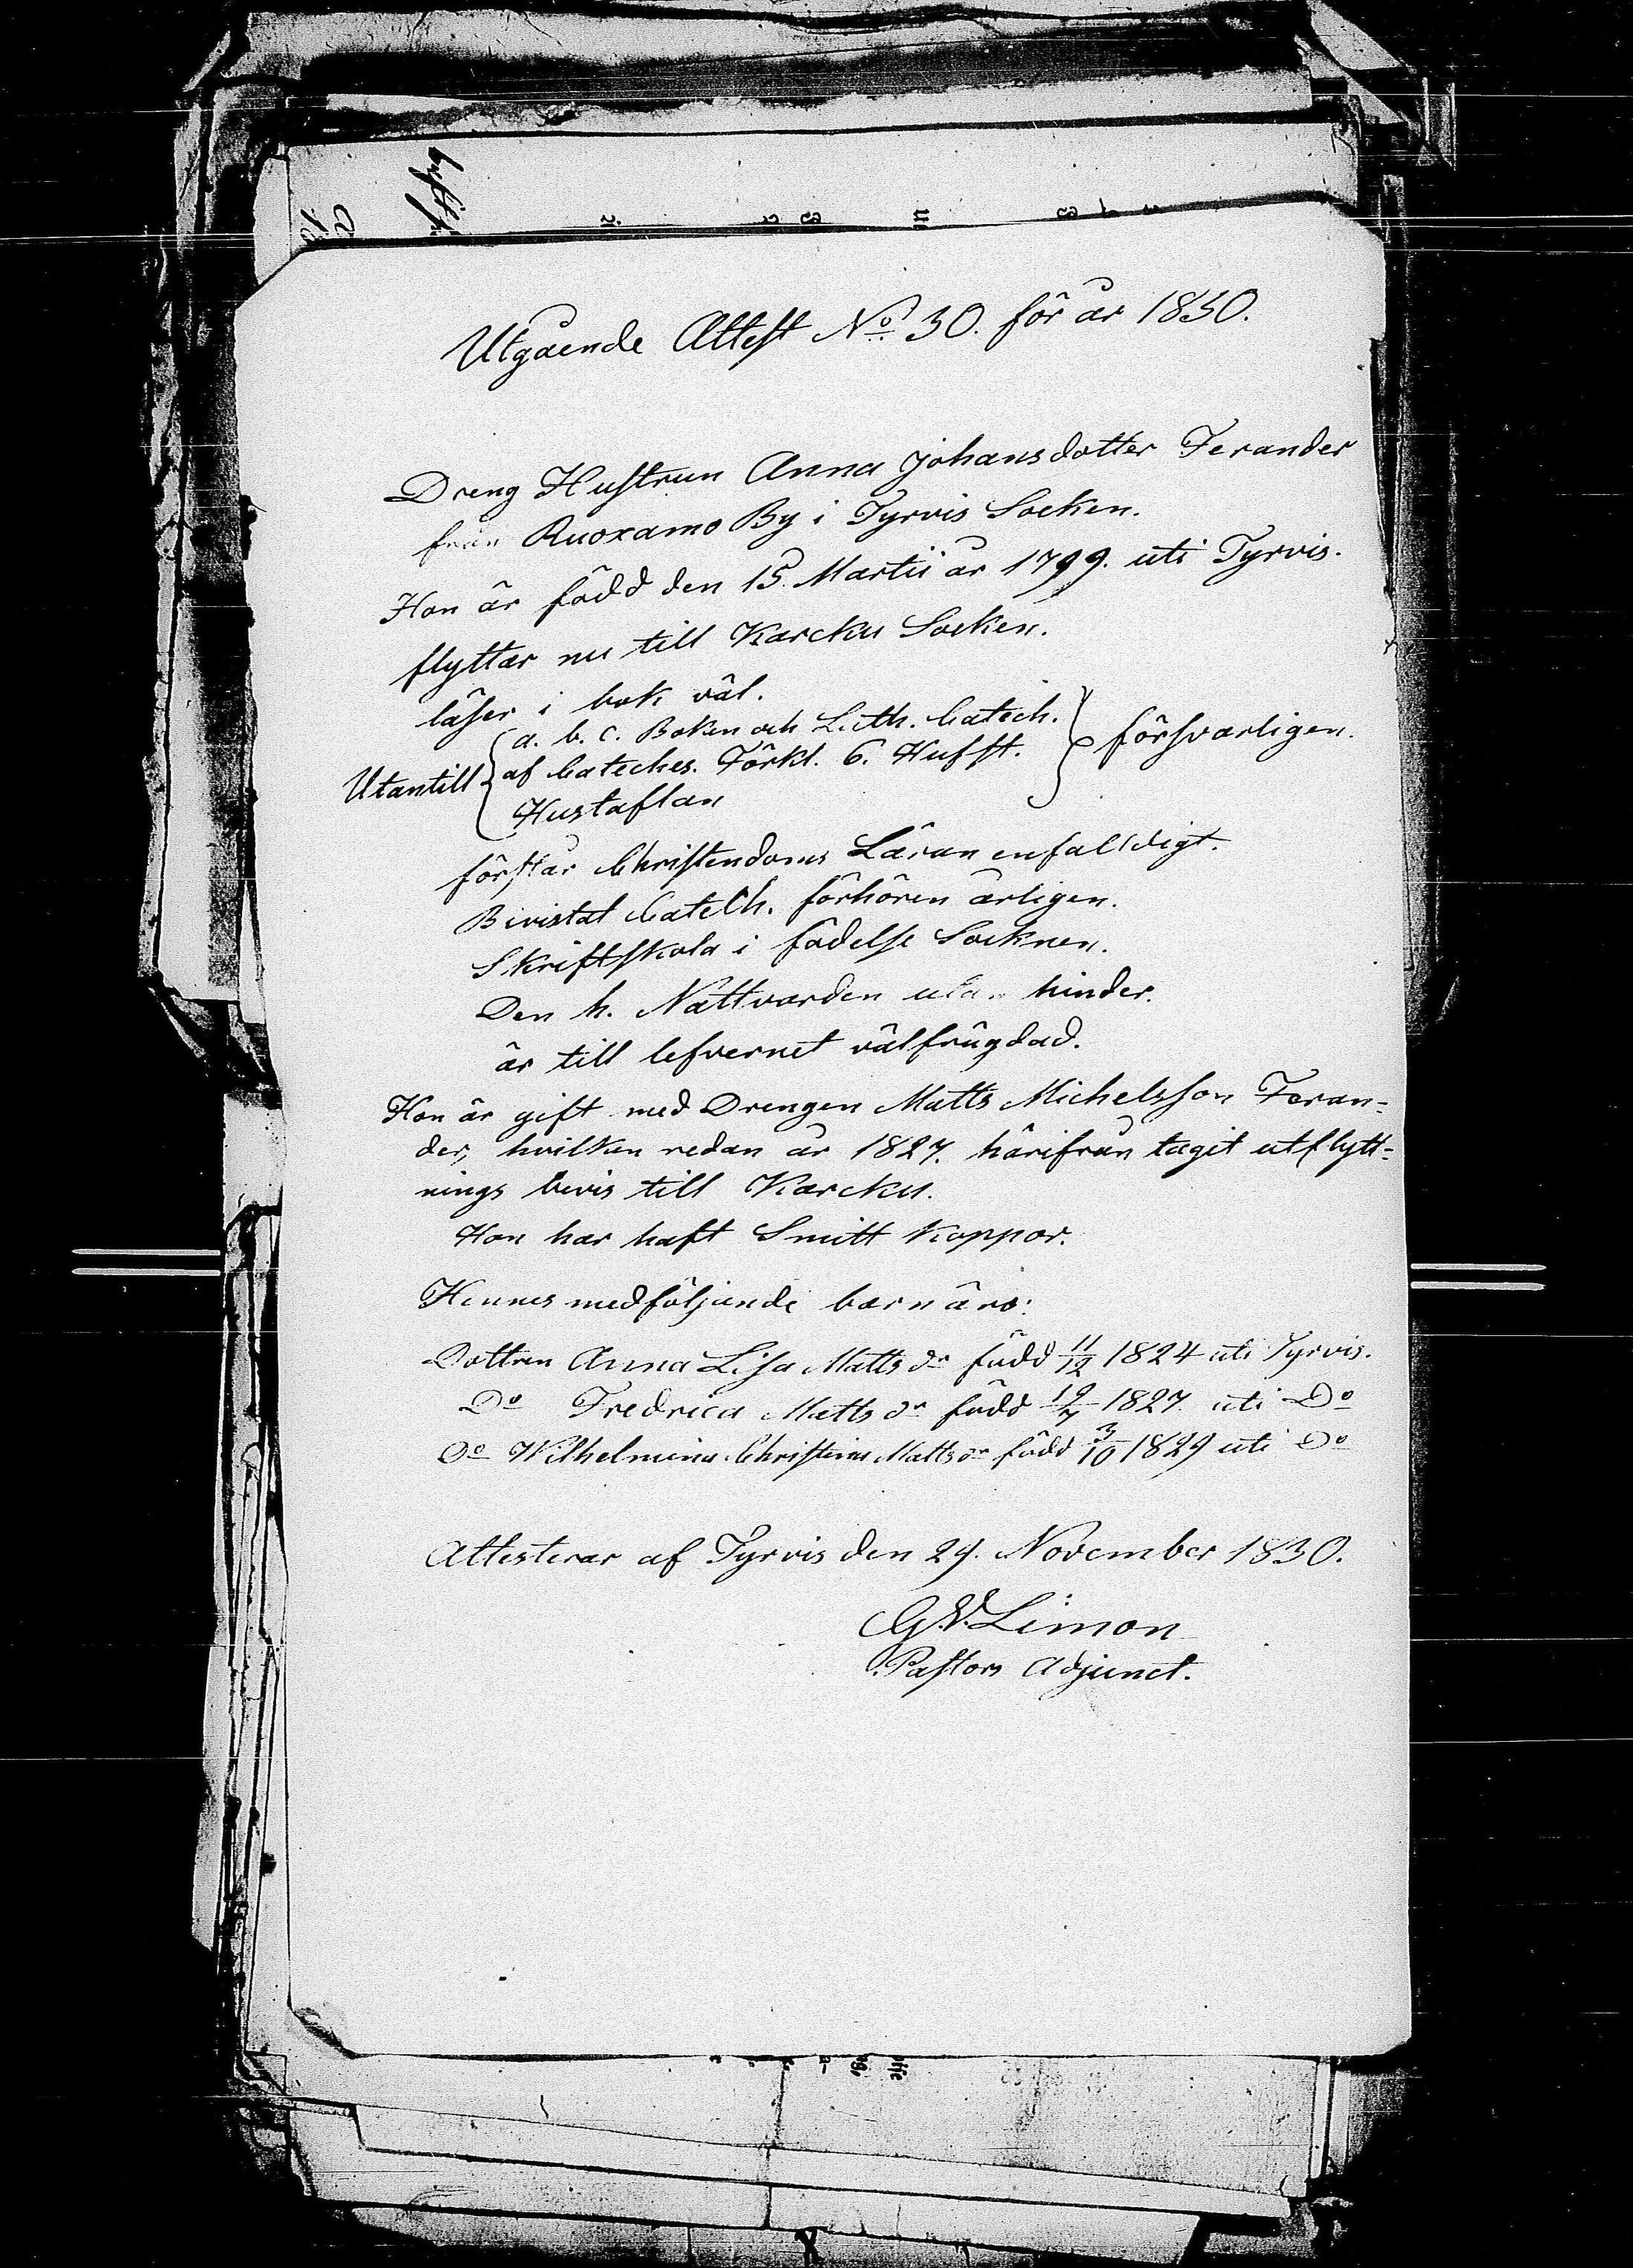 Utgående Attest No 30. för år 1830.
Dreng Hustrun Anna Johansdotter Ferander
från Ruoxamo By i Tyrvis Socken.
Hon är född den 15. Martii år 1799. uti Tyrvis.
flyttar nu till Karcku Socken.
läser i bok väl.
a. b. c. Boken och Luth. Catech.
Utantill af Cateches. Förkl. 6. Hufst. försvarligen.
Hustaflan
förstår Christendoms Läran enfalldigt.
Bivistat Catech. förhören årligen.
Skriftskola i födelse Socknen.
Den h. Nattvarden utan hinder.
är till lefvernet välfrägdad.
Hon är gift med Drengen Matts Michelsson Feran-
der, hvilken redan år 1827. härifrån tagit utflytt-
nings bevis till Karcku.
Hon har haft Smitt Koppor.
Hennes medföljande barn äro:
Dottren Anna Lisa Matts dr född 11/12 1824 uti Tyrvis.
Do Fredrica Matts dr född 19/7 1827 uti Do
Do Wilhelmina Christina Matts dr född 3/10 1829 uti Do
Attesterar af Tyrvis den 29. November 1830.
G. W. Limon
Pastors Adjunct.